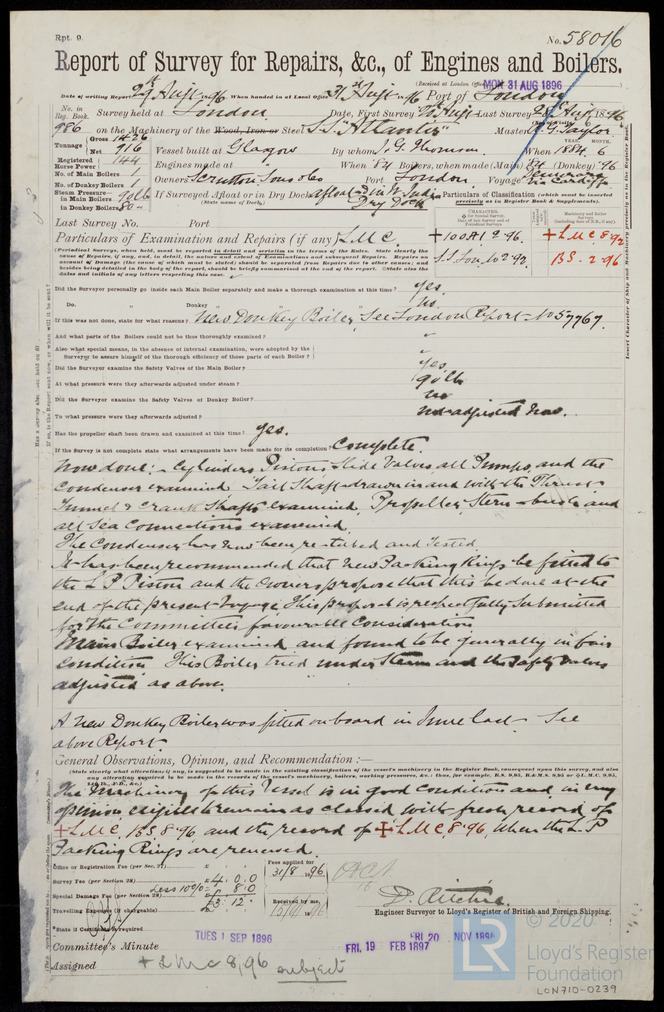 Rpt. 9.
No. 58016
Report of Survey for Repairs, &c., of Engines and Boilers.
(Received at London Office MON 31 AUG 1896
Date of writing Report 29th Augt 1896 When handed in at Local Office 31st Augt 1896 Port of London
No. in Reg. Book. Survey held at London Date, First Survey 20 Augt Last Survey 28th Augt 1896
986 on the Machinery of the Wood, Iron or Steel S.S. "Atlantis" Master J. G. Taylor
Tonnage Gross 1426
Net 916
Vessel built at Glasgow By whom J. G. Thomson When 1884. 6
Registered Horse Power 144
Engines made at " When '84 Boilers, when made (Main) 84 (Donkey) 96
No. of Main Boilers 1
Owners Scrutton Sons & Co Port London Voyage Demerara via Cardiff
No. of Donkey Boilers 1
Steam Pressure in Main Boilers 90 lb
in Donkey Boilers 80
If Surveyed Afloat or in Dry Dock afloat in W. India Dry Dock
(State name of Dock.)
Particulars of Classification (which must be inserted precisely as in Register Book & Supplements).
Last Survey No. Port
Particulars of Examination and Repairs (if any) L.M.C.
+100A1 2.96.
+LMC 8.92
S.S. Lon. No 2-92.
BS. 2.96
Did the Surveyor personally go inside each Main Boiler separately and make a thorough examination at this time? yes
Do. " Donkey " " " " " no
If this was not done, state for what reasons? New Donkey Boiler, See London Report No 57767.
And what parts of the Boilers could not be thus thoroughly examined? "
Also what special means, in the absence of internal examination, were adopted by the Surveyor to assure himself of the thorough efficiency of those parts of each Boiler? "
Did the Surveyor examine the Safety Valves of the Main Boiler? yes
At what pressure were they afterwards adjusted under steam? 90 lb
Did the Surveyor examine the Safety Valves of Donkey Boiler? no
To what pressure were they afterwards adjusted? Not adjusted now.
Has the propeller shaft been drawn and examined at this time? yes.
If the Survey is not complete state what arrangements have been made for its completion? Complete.
Now done:- Cylinders Pistons Slide Valves all Pumps, and the
Condenser examined. Tail Shaft drawn in and with the Thrust
Tunnel & Crank Shafts examined. Propeller, Stern-bush, and
all Sea Connections examined.
The Condenser has now been re-tubed and tested.
It has been recommended that new Packing Rings be fitted to
the L P Piston and the Owners propose that this be done at the
end of the present Voyage. This proposal is respectfully submitted
for the Committee's favourable Consideration
Main Boiler examined and found to be generally in fair
Condition. This Boiler tried under Steam and the Safety Valves
adjusted as above.
A new Donkey Boiler was fitted on board in June last. See
above Report.
General Observations, Opinion, and Recommendation:—
The Machinery of this Vessel is in good Condition and in my
opinion eligible to remain as classed with fresh record of
+LMC. BS 8.96 and the record of +LMC 8.96, When the L.P
Packing Rings are renewed.
Office or Registration Fee (per Sec. 27)
Survey Fee (per Section 28) £4. 0. 0
Less 10% 8. 0
Special Damage Fee (per Section 28) £3. 12.
Travelling Expenses (if chargeable)
Fees applied for 31/8 1896
Received by me,
D. Ritchie
Engineer Surveyor to Lloyd's Register of British and Foreign Shipping.
*State if Certificate is required
TUES 1 SEP 1896
FRI. 20 NOV 1896
FRI. 19 FEB 1897
Committee's Minute
Assigned + LMC 8,96 subject
© 2020
LR
Lloyd's Register
Foundation
LON710-0239